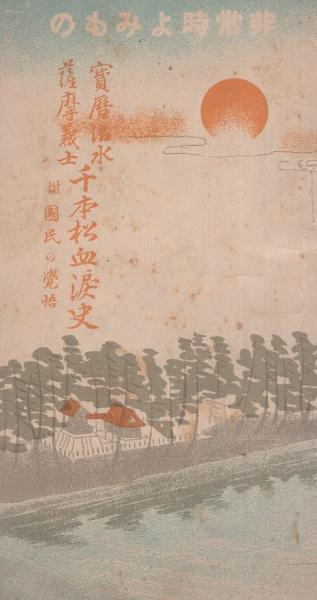 非常時よみもの
寶暦治水
薩摩義士
千本松血淚史
附 國民の覺悟